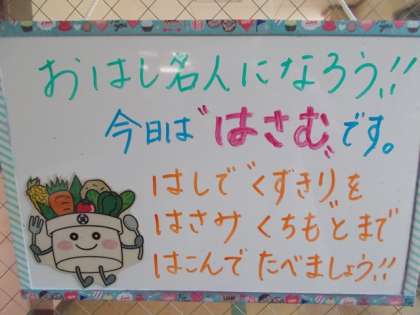 おはし名人になろう!!
今日は"はさむ"です。
はしで"くずきり"を
はさみ くちもとまで
はこんで たべましょう!!